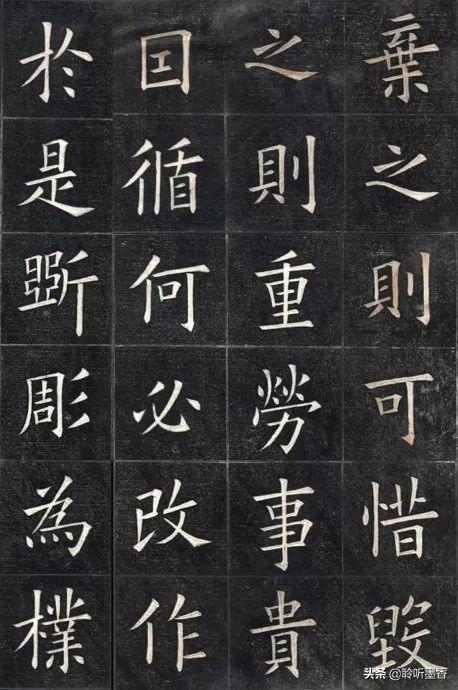 棄之則可惜毀
之則重勞事貴
囙循何必改作
於是斲彫為樸
头条 @聆听墨香